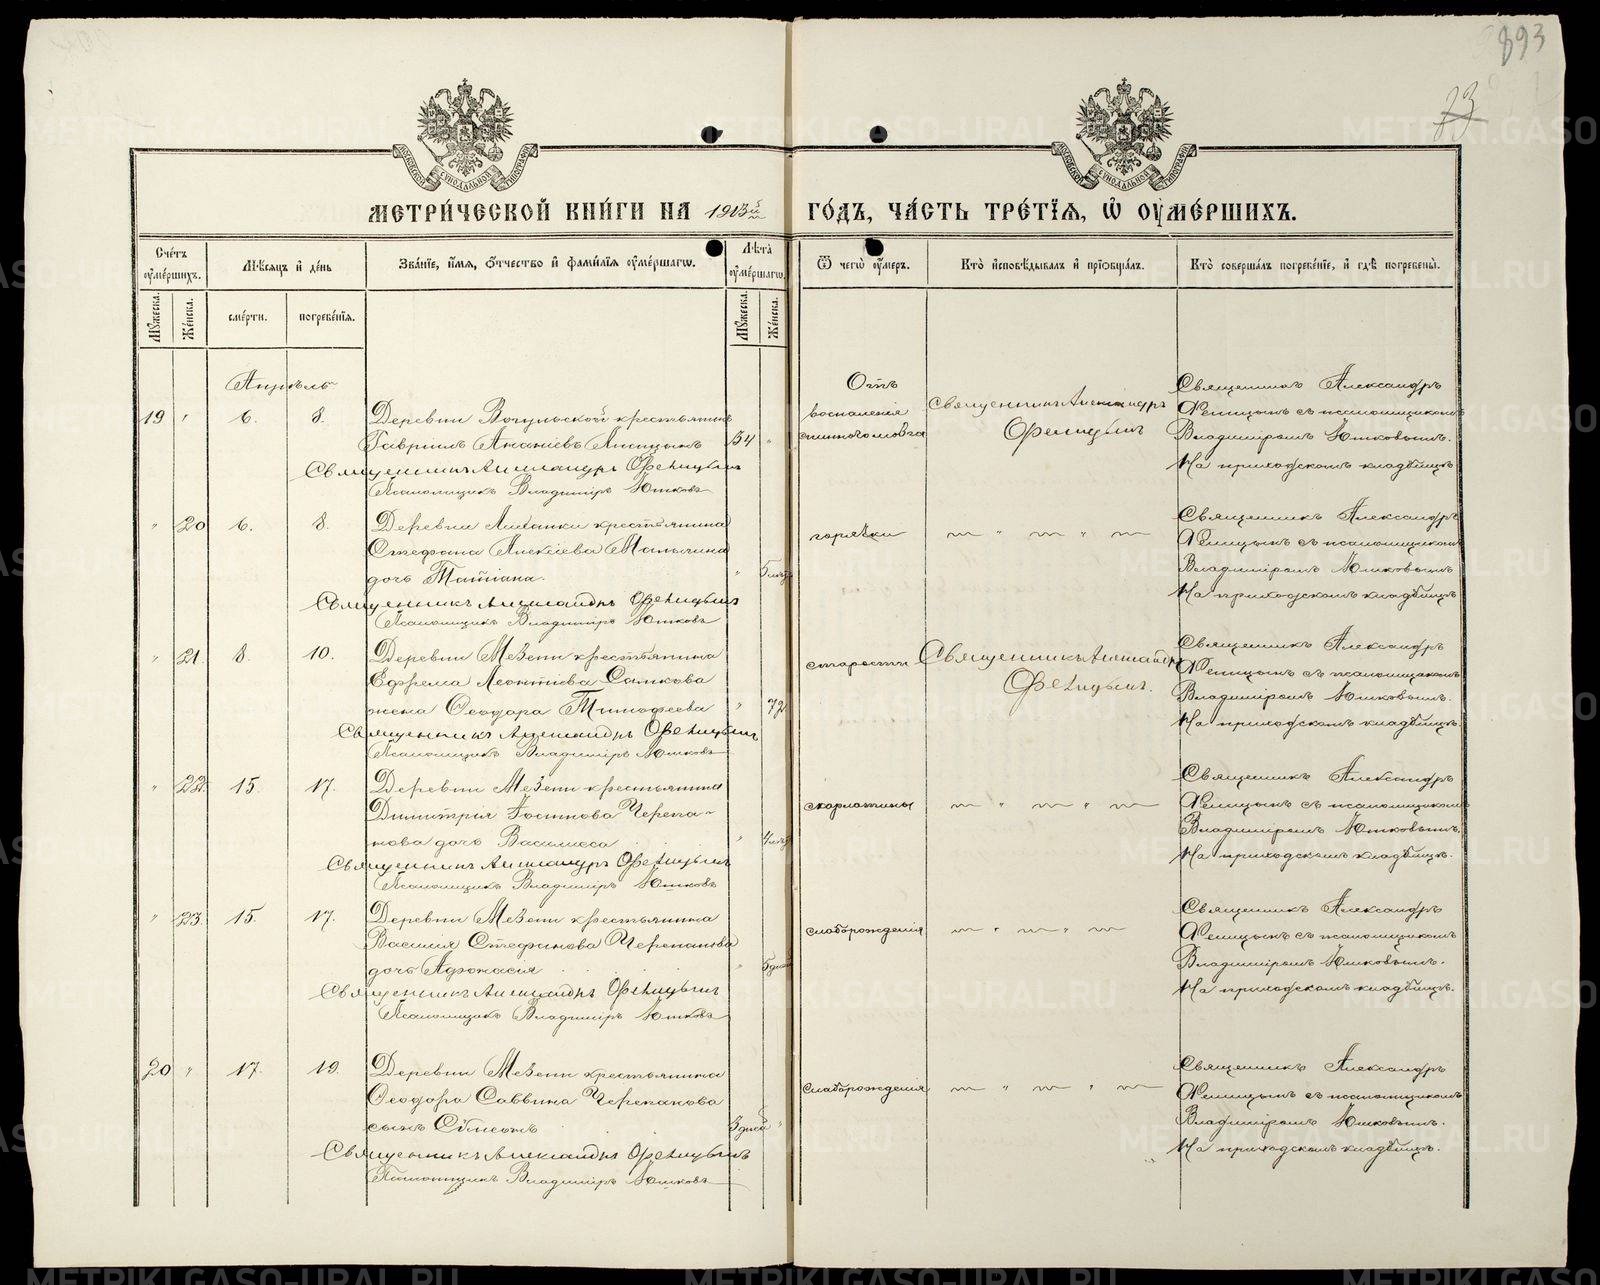 893
73
МЕТРИ́ЧЕСКОЙ КНИ́ГИ НА 1913й ГО́ДЪ, ЧА́СТЬ ТРЕ́ТІЯ, Ѡ ОУМЕ́РШИХЪ.
Сче́тъ оуме́ршихъ.
Мѣсяцъ и де́нь
Зва́ніе, и́мя, о́тчество и фами́лія оуме́ршагѡ.
Лѣта̀ оуме́ршагѡ.
Ѿ чегѡ̀ оу́меръ.
Кто̀ исповѣ́дывалъ и пріобща́лъ.
Кто̀ соверша́лъ погребе́ніе, и гдѣ̀ погребены̀.
Му́жеска.
Же́нска.
сме́рти.
погребе́нія.
Му́жеска.
Же́нска.
Апрѣль
19 " 6. 8. Деревни крестьянинъ
Гавріилъ Ананіевъ 54 "
Священникъ Александръ Ѳелицынъ
Псаломщикъ Владиміръ Юшковъ
Отъ
воспаленія
спинного мозга
Священникъ Александръ
Ѳелицынъ
Священникъ Александръ
Ѳелицынъ съ псаломщикомъ
Владиміромъ Юшковымъ.
На приходскомъ кладбищѣ
" 20 6. 8. Деревни крестьянина
Стефана Алексіева Малыгина
дочь Татіана. " 5 лѣтъ
Священникъ Александръ Ѳелицынъ
Псаломщикъ Владиміръ Юшковъ
горячки
Священникъ Александръ
Ѳелицынъ съ псаломщикомъ
Владиміромъ Юшковымъ
На приходскомъ кладбищѣ
" 21. 8. 10. Деревни Мезени крестьянина
Ефрема Леонтіева Сажкова
жена Ѳеодора Тимофеева " 72
Священникъ Александръ Ѳелицынъ
Псаломщикъ Владиміръ Юшковъ
старости
Священникъ Александръ
Ѳелицынъ.
Священникъ Александръ
Ѳелицынъ съ псаломщикомъ
Владиміромъ Юшковымъ.
На приходскомъ кладбищѣ.
" 22. 15. 17. Деревни Мезени крестьянина
Димитрія Черепа-
нова дочь Василисса " 4 лѣтъ
Священникъ Александръ Ѳелицынъ
Псаломщикъ Владиміръ Юшковъ
скарлатины
Священникъ Александръ
Ѳелицынъ съ псаломщикомъ
Владиміромъ Юшковымъ.
На приходскомъ кладбищѣ.
" 23. 15. 17. Деревни Мезени крестьянина
Василія Стефанова Черепанова
дочь Аѳанасія " 5 дней
Священникъ Александръ Ѳелицынъ
Псаломщикъ Владиміръ Юшковъ
слаборожденія
Священникъ Александръ
Ѳелицынъ съ псаломщикомъ
Владиміромъ Юшковымъ.
На приходскомъ кладбищѣ.
20 " 17. 19. Деревни Мезени крестьянина
Ѳеодора Саввина Черепанова
сынъ Сѵмеонъ 3 дней "
Священникъ Александръ Ѳелицынъ
Псаломщикъ Владиміръ Юшковъ
слаборожденія
Священникъ Александръ
Ѳелицынъ съ псаломщикомъ
Владиміромъ Юшковымъ.
На приходскомъ кладбищѣ.
METRIKI.GASO-URAL.RU